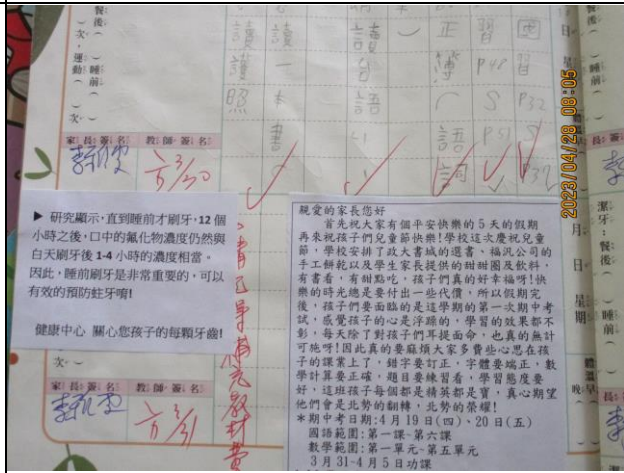 餐後
次
運動
睡前
讀
護
照
讀
一
本
書
讀
語
正
習
簿
語
詞
國
習
P48
P32
S
P51
家長簽名
教師簽名
3/30
▶ 研究顯示,直到睡前才刷牙,12 個
小時之後,口中的氟化物濃度仍然與
白天刷牙後 1-4 小時的濃度相當。
因此,睡前刷牙是非常重要的,可以
有效的預防蛀牙唷!
健康中心 關心您孩子的每顆牙齒!
次
家長簽名
教師簽名
3/31
補充教材費
親愛的家長您好
首先祝大家有個平安快樂的 5 天的假期
再來祝孩子們兒童節快樂!學校這次慶祝兒童
節,學校安排了政大書城的選書、福汎公司的
手工餅乾以及學生家長提供的甜甜圈及飲料,
有書看,有甜點吃,孩子們真的好幸福呀!快
樂的時光總是要付出一些代價,所以假期完
後,孩子們要面臨的是這學期的第一次期中考
試,感覺孩子的心是浮躁的,學習的效果都不
彰,每天除了對孩子們耳提面命,也真的無計
可施呀!因此真的要麻煩大家多費些心思在孩
子的課業上了,錯字要訂正,字體要端正,數
學計算要正確,題目要練習看,學習態度要
好,這班孩子每個都是精英都是寶,真心期望
他們會是北勢的翻轉,北勢的榮耀!
*期中考日期:4 月 19 日(四)、20 日(五)
國語範圍:第一課~第六課
數學範圍:第一單元~第五單元
3 月 31-4 月 5 日功課
2023/04/28 08:05
月
日
星期
潔牙:餐後
睡前
體溫
晚